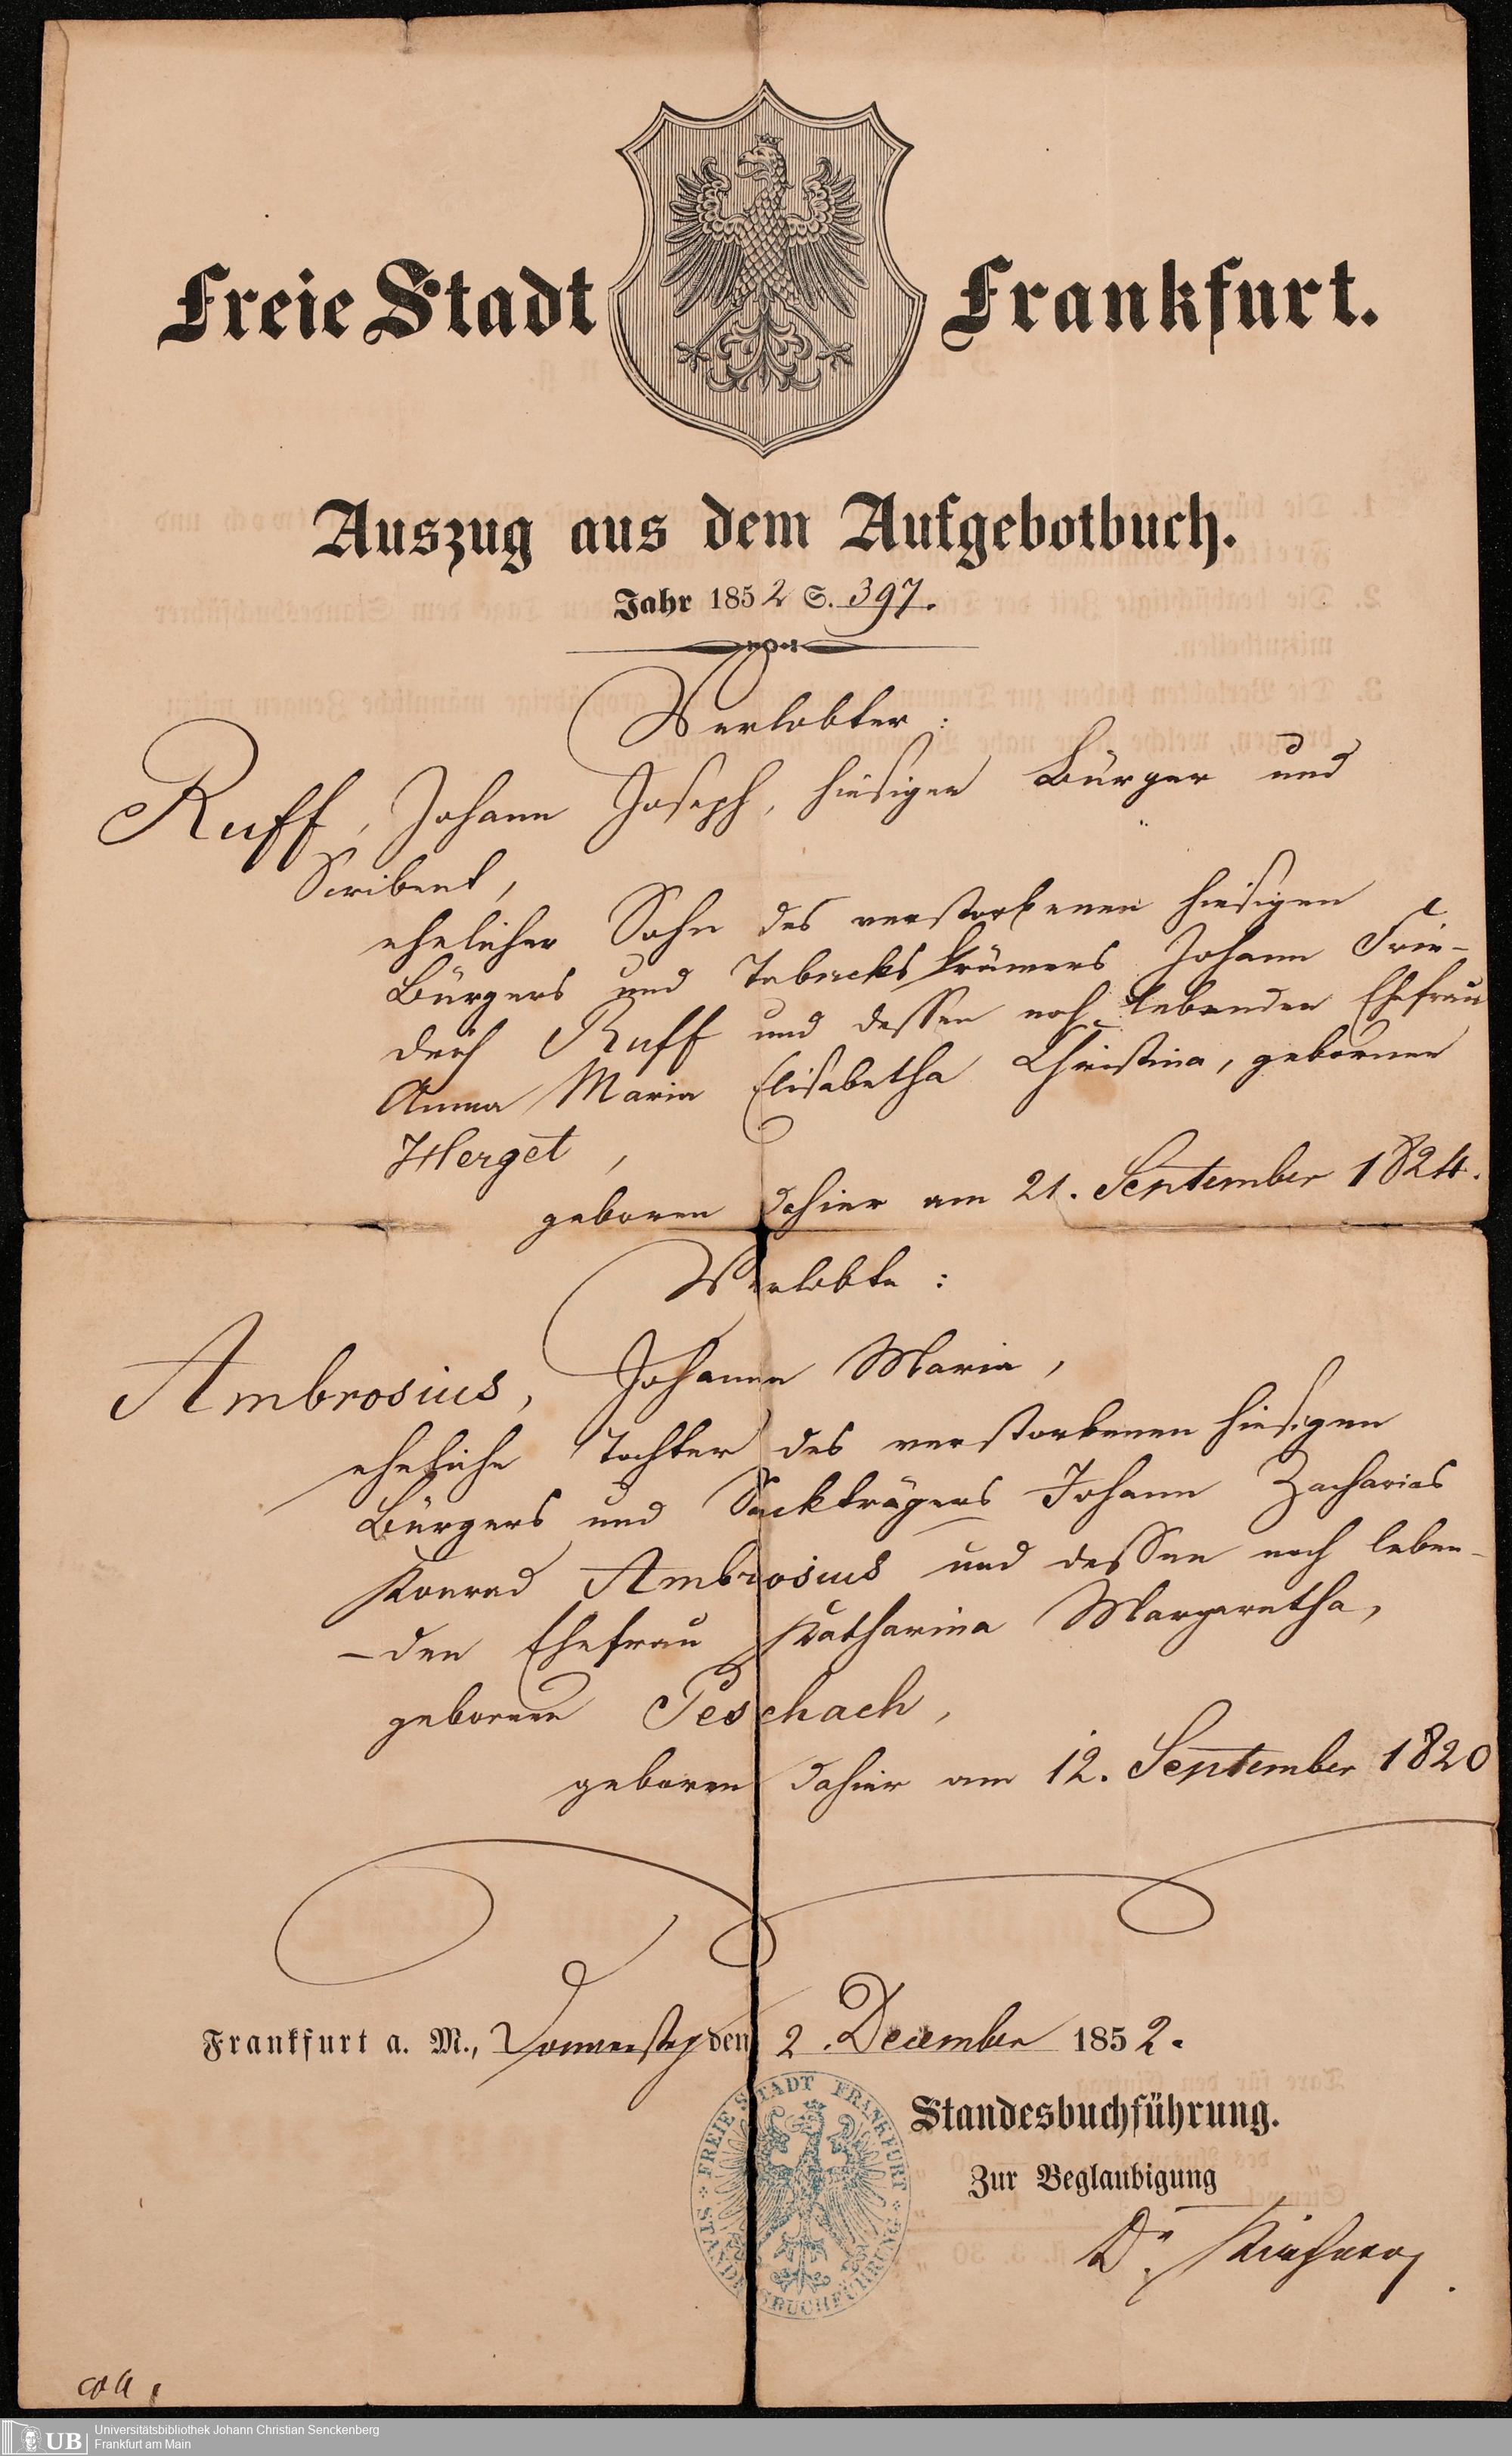 Freie Stadt Frankfurt.
Auszug aus dem Aufgebotbuch.
Jahr 1852 S. 397.
Verlobter:
Ruff, Johann Joseph, hiesiger Bürger und
Scribent,
ehelicher Sohn des verstorbenen hiesigen
Bürgers und Tabackskrämers Johann Frie-
drich Ruff und dessen noch lebenden Ehefrau
Anna Maria Elisabetha Christina, gebornen
Herget,
geboren dahier am 21. September 1824.
Verlobte:
Ambrosius, Johanna Maria,
eheliche Tochter des verstorbenen hiesigen
Bürgers und Sackträgers Johann Zacharias
Konrad Ambrosius und dessen noch leben-
-den Ehefrau Katharina Margaretha,
gebornen Peschach,
geboren dahier am 12. September 1820
Frankfurt a. M., Donnerstag den 2. December 1852.
FREIE STADT FRANKFURT
STANDESBUCHFÜHRUNG
Standesbuchführung.
Zur Beglaubigung
Dr.
coll.
UB
Universitätsbibliothek Johann Christian Senckenberg
Frankfurt am Main